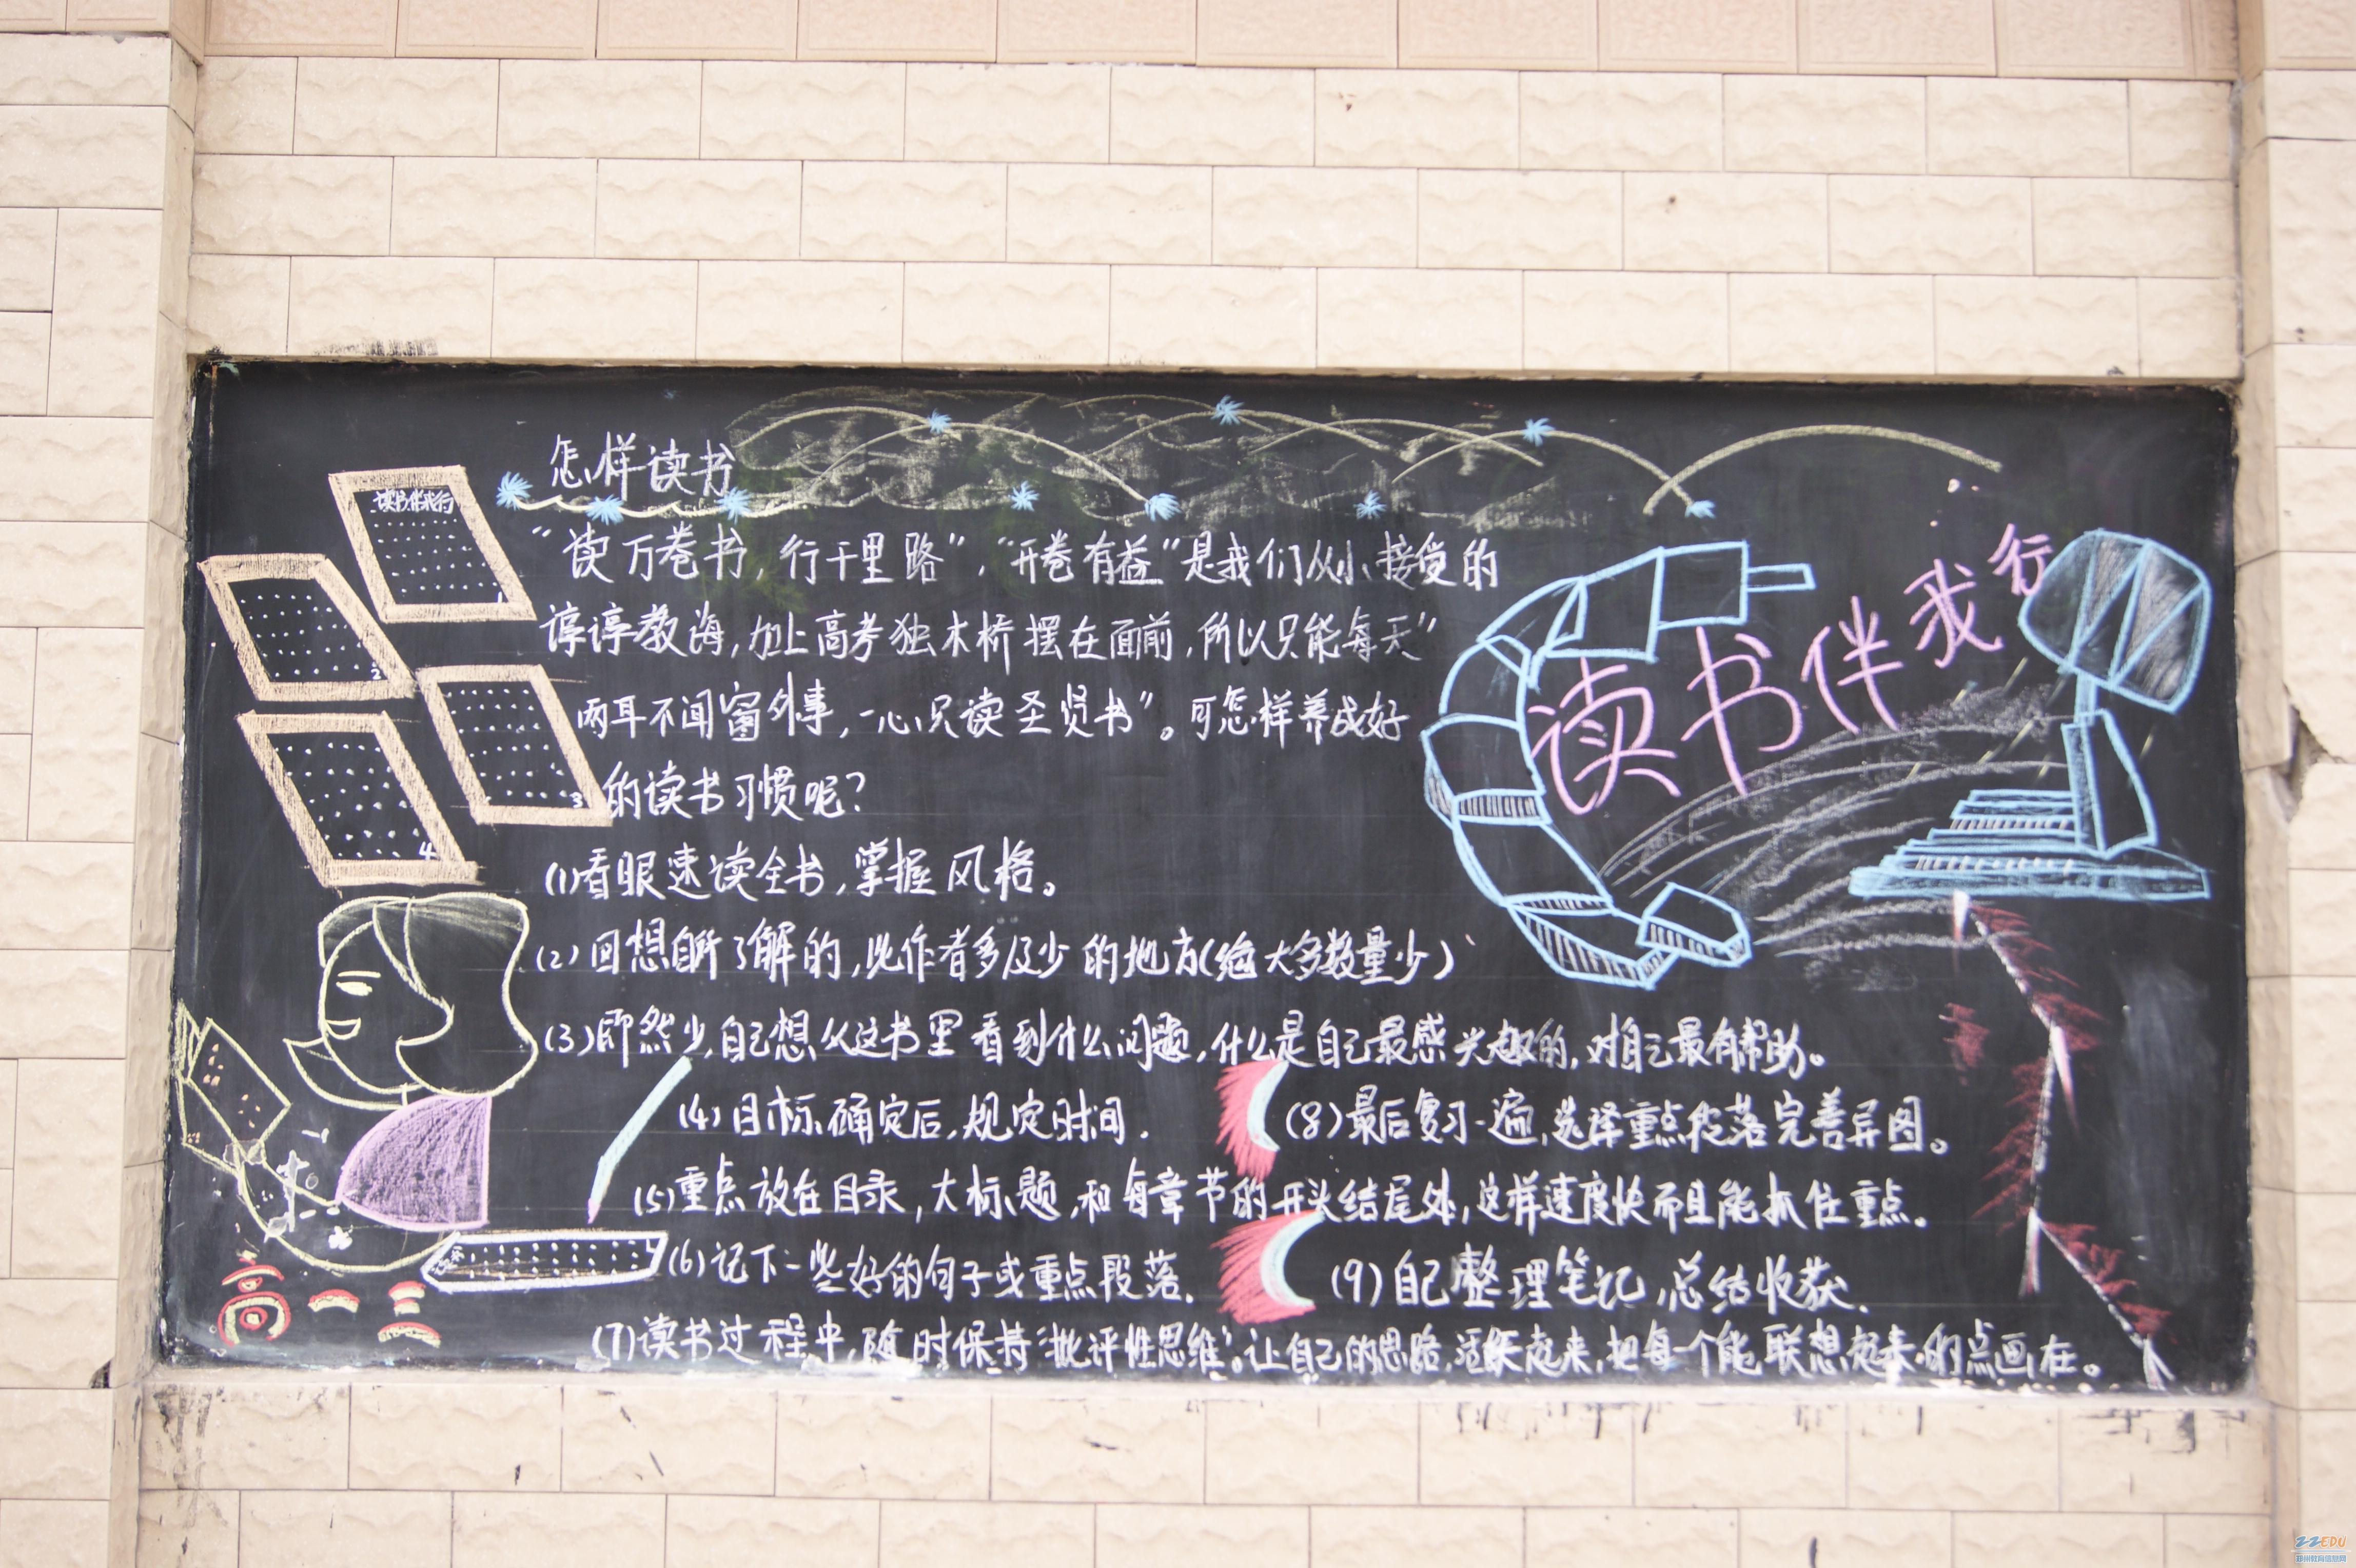 怎样读书
读书伴我行
“读万卷书，行千里路”，“开卷有益”是我们从小接受的
谆谆教诲，加上高考独木桥摆在面前，所以只能每天”
两耳不闻窗外事，一心只读圣贤书”。可怎样养成好
的读书习惯呢？
读书伴我行
1
2
3
4
(1)看眼速读全书，掌握风格。
(2)回想自所了解的，此作者多及少的地方(绝大多数量少)
(3)即然少，自己想从这书里看到什么问题，什么是自己最感兴趣的，对自己最有帮助。
(4)目标确定后，规定时间.
(8)最后复习一遍，选择重点段落完善异图。
(5)重点放在目录，大标题，和每章节的开头结尾处，这样速度快而且能抓住重点。
(6)记下一些好的句子或重点段落.
(9)自己整理笔记，总结收获.
(7)读书过程中，随时保持‘批评性思维’。让自己的思路，活跃起来，把每一个能联想起来的点画在。
高一三
ZZEDU
郑州教育信息网